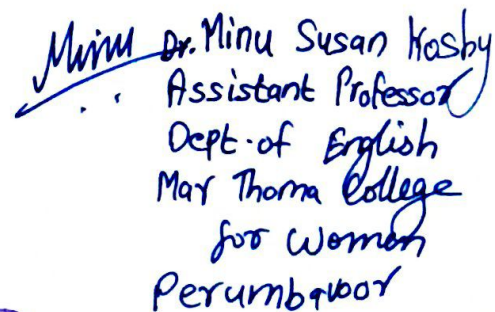 Minu Dr. Minu Susan Koshy
Assistant Professor
Dept. of English
Mar Thoma College
for Women
Perumbavoor